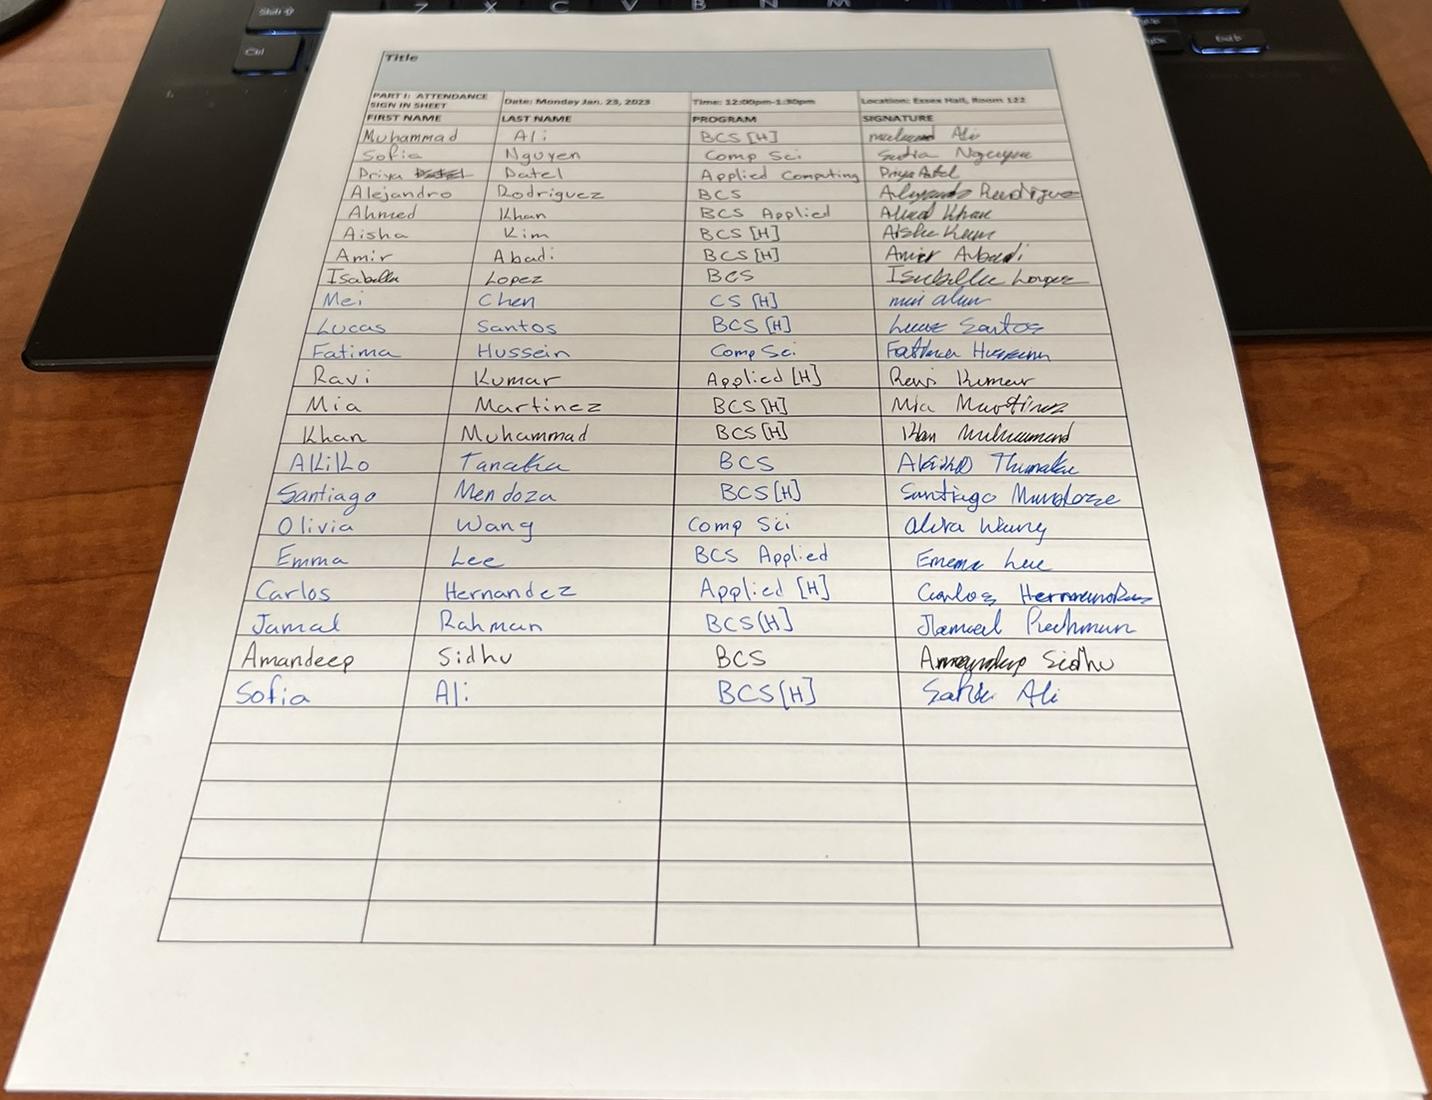 Shift
Z X C V B N M
Ctrl
End
Title
PART I: ATTENDANCE SIGN IN SHEET Date: Monday Jan. 23, 2023 Time: 12:00pm-1:30pm Location: Essex Hall, Room 122
FIRST NAME LAST NAME PROGRAM SIGNATURE
Muhammad Ali BCS [H] Ali
Sofia Nguyen Comp Sci Nguyen
Priya Patel Applied Computing Priya Patel
Alejandro Rodriguez BCS Alejandro Rodriguez
Ahmed Khan BCS Applied Ahmed Khan
Aisha Kim BCS [H] Aisha Kim
Amir Abadi BCS [H] Amir Abadi
Isabella Lopez BCS Isabella Lopez
Mei Chen CS [H] mei chen
Lucas Santos BCS [H] Lucas Santos
Fatima Hussein Comp Sci Fatima Hussein
Ravi Kumar Applied [H] Ravi Kumar
Mia Martinez BCS [H] Mia Martinez
Khan Muhammad BCS [H] Khan Muhammad
Akiko Tanaka BCS Akiko Tanaka
Santiago Mendoza BCS [H] Santiago Mendoza
Olivia Wang Comp Sci Olivia Wang
Emma Lee BCS Applied Emma Lee
Carlos Hernandez Applied [H] Carlos Hernandez
Jamal Rahman BCS [H] Jamal Rahman
Amandeep Sidhu BCS Amandeep Sidhu
Sofia Ali BCS [H] Sofia Ali